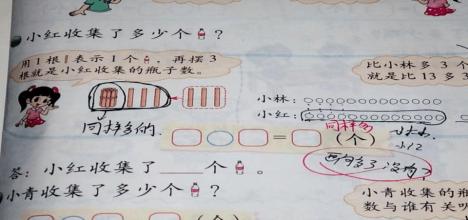 小红收集了多少个？
用1根表示1个，再摆3
根就是小红收集的瓶子数。
比小林多3个
就是比13多3
小林：
小红：
同样多的
同样多
=（个）
答：小红收集了___个。
小青收集了多少个？
小青收集的瓶
数与谁有关